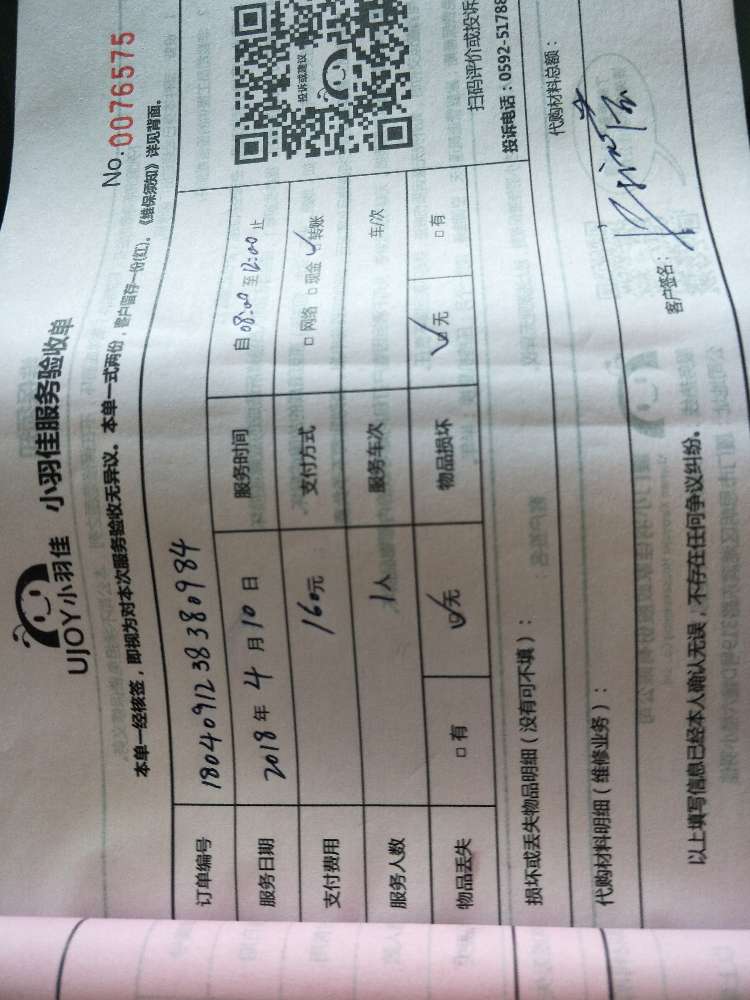 UJOY小羽佳 小羽佳服务验收单
No.0076575
本单一经核签，即视为对本次服务验收无异议。本单一式两份，客户留存一份(红)。《维保须知》详见背面。
订单编号 1804091238380984
服务日期 2018年4月10日 服务时间 自08:00至12:00止
支付费用 160元 支付方式 □网络 □现金 ☑转账
服务人数 1人 服务车次 车/次
物品丢失 □有 ☑无 物品损坏 ☑无 □有
投诉或建议
扫码评价或投诉
投诉电话：0592-51788
损坏或丢失物品明细（没有可不填）：
代购材料明细（维修业务）： 代购材料总额：
以上填写信息已经本人确认无误，不存在任何争议纠纷。 客户签名：